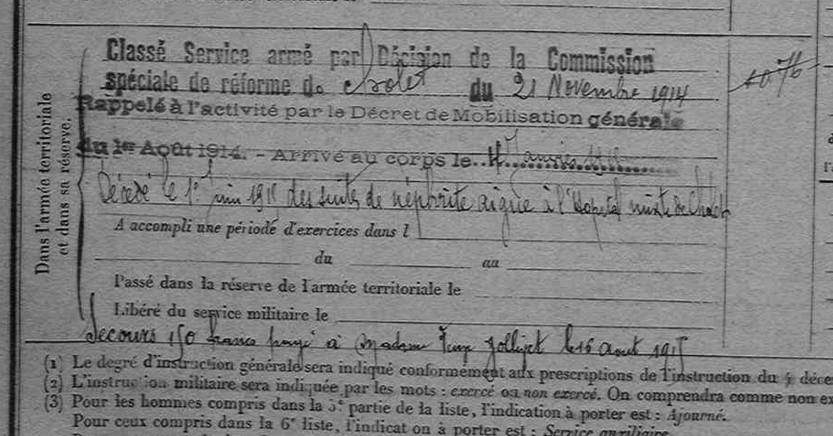 Classé Service armé par Décision de la Commission
spéciale de réforme de Cholet du 21 Novembre 1914
1076
Rappelé à l'activité par le Décret de Mobilisation générale
du 1er Août 1914. - Arrivé au corps le
Décédé le 1er juin 1915 des suites de néphrite aigue à l'Hopital mixte de Cholet
A accompli une période d'exercices dans l
du au
Passé dans la réserve de l'armée territoriale le
Libéré du service militaire le
Secours 150 francs payé à Madame le 16 aout 1915
Dans l'armée territoriale
et dans sa réserve.
(1) Le degré d'instruction générale sera indiqué conformément aux prescriptions de l'instruction du 4 déce
(2) L'instruction militaire sera indiquée par les mots : exercé ou non exercé. On comprendra comme non ex
(3) Pour les hommes compris dans la 5e partie de la liste, l'indication à porter est : Ajourné.
Pour ceux compris dans la 6e liste, l'indicat on à porter est : Service auxiliaire